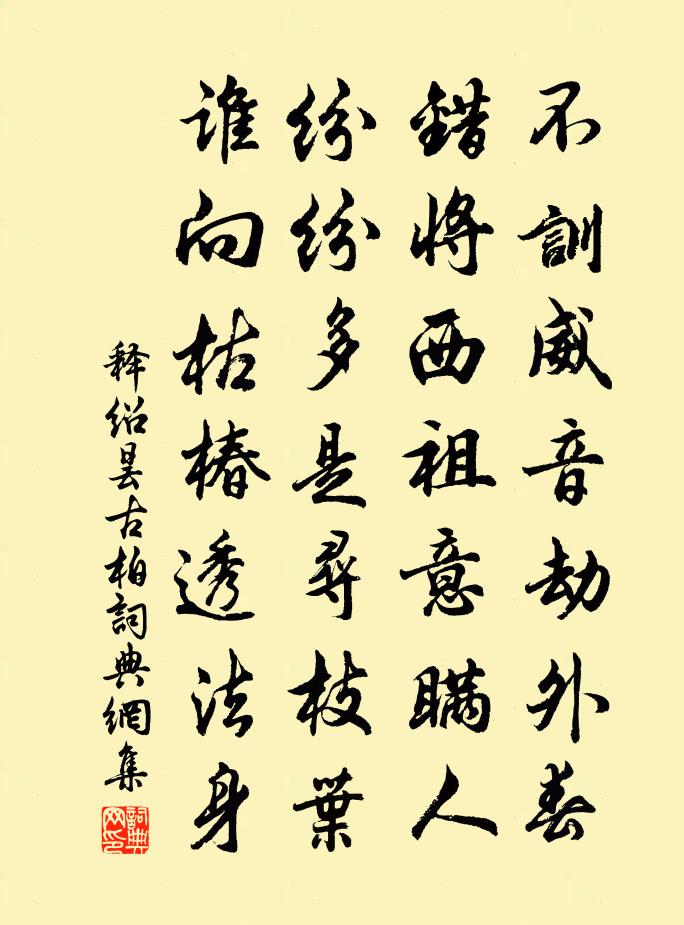 不訓威音劫外春
錯將西祖意瞞人
紛紛多是尋枝葉
誰向枯樁透法身
释绍昙古柏詞典網集
詞典网印